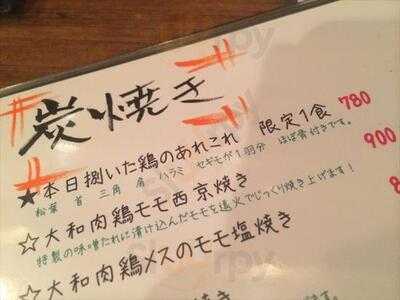 炭焼き
★本日捌いた鶏のあれこれ 限定1食 780
松葉 首 三角 肩 ハラミ セギモが1羽分 ほぼ骨付きです。
☆大和肉鶏モモ西京焼き 900
特製の味噌たれに漬け込んだモモを遠火でじっくり焼き上げます!
☆大和肉鶏メスのモモ塩焼き 8
焼き